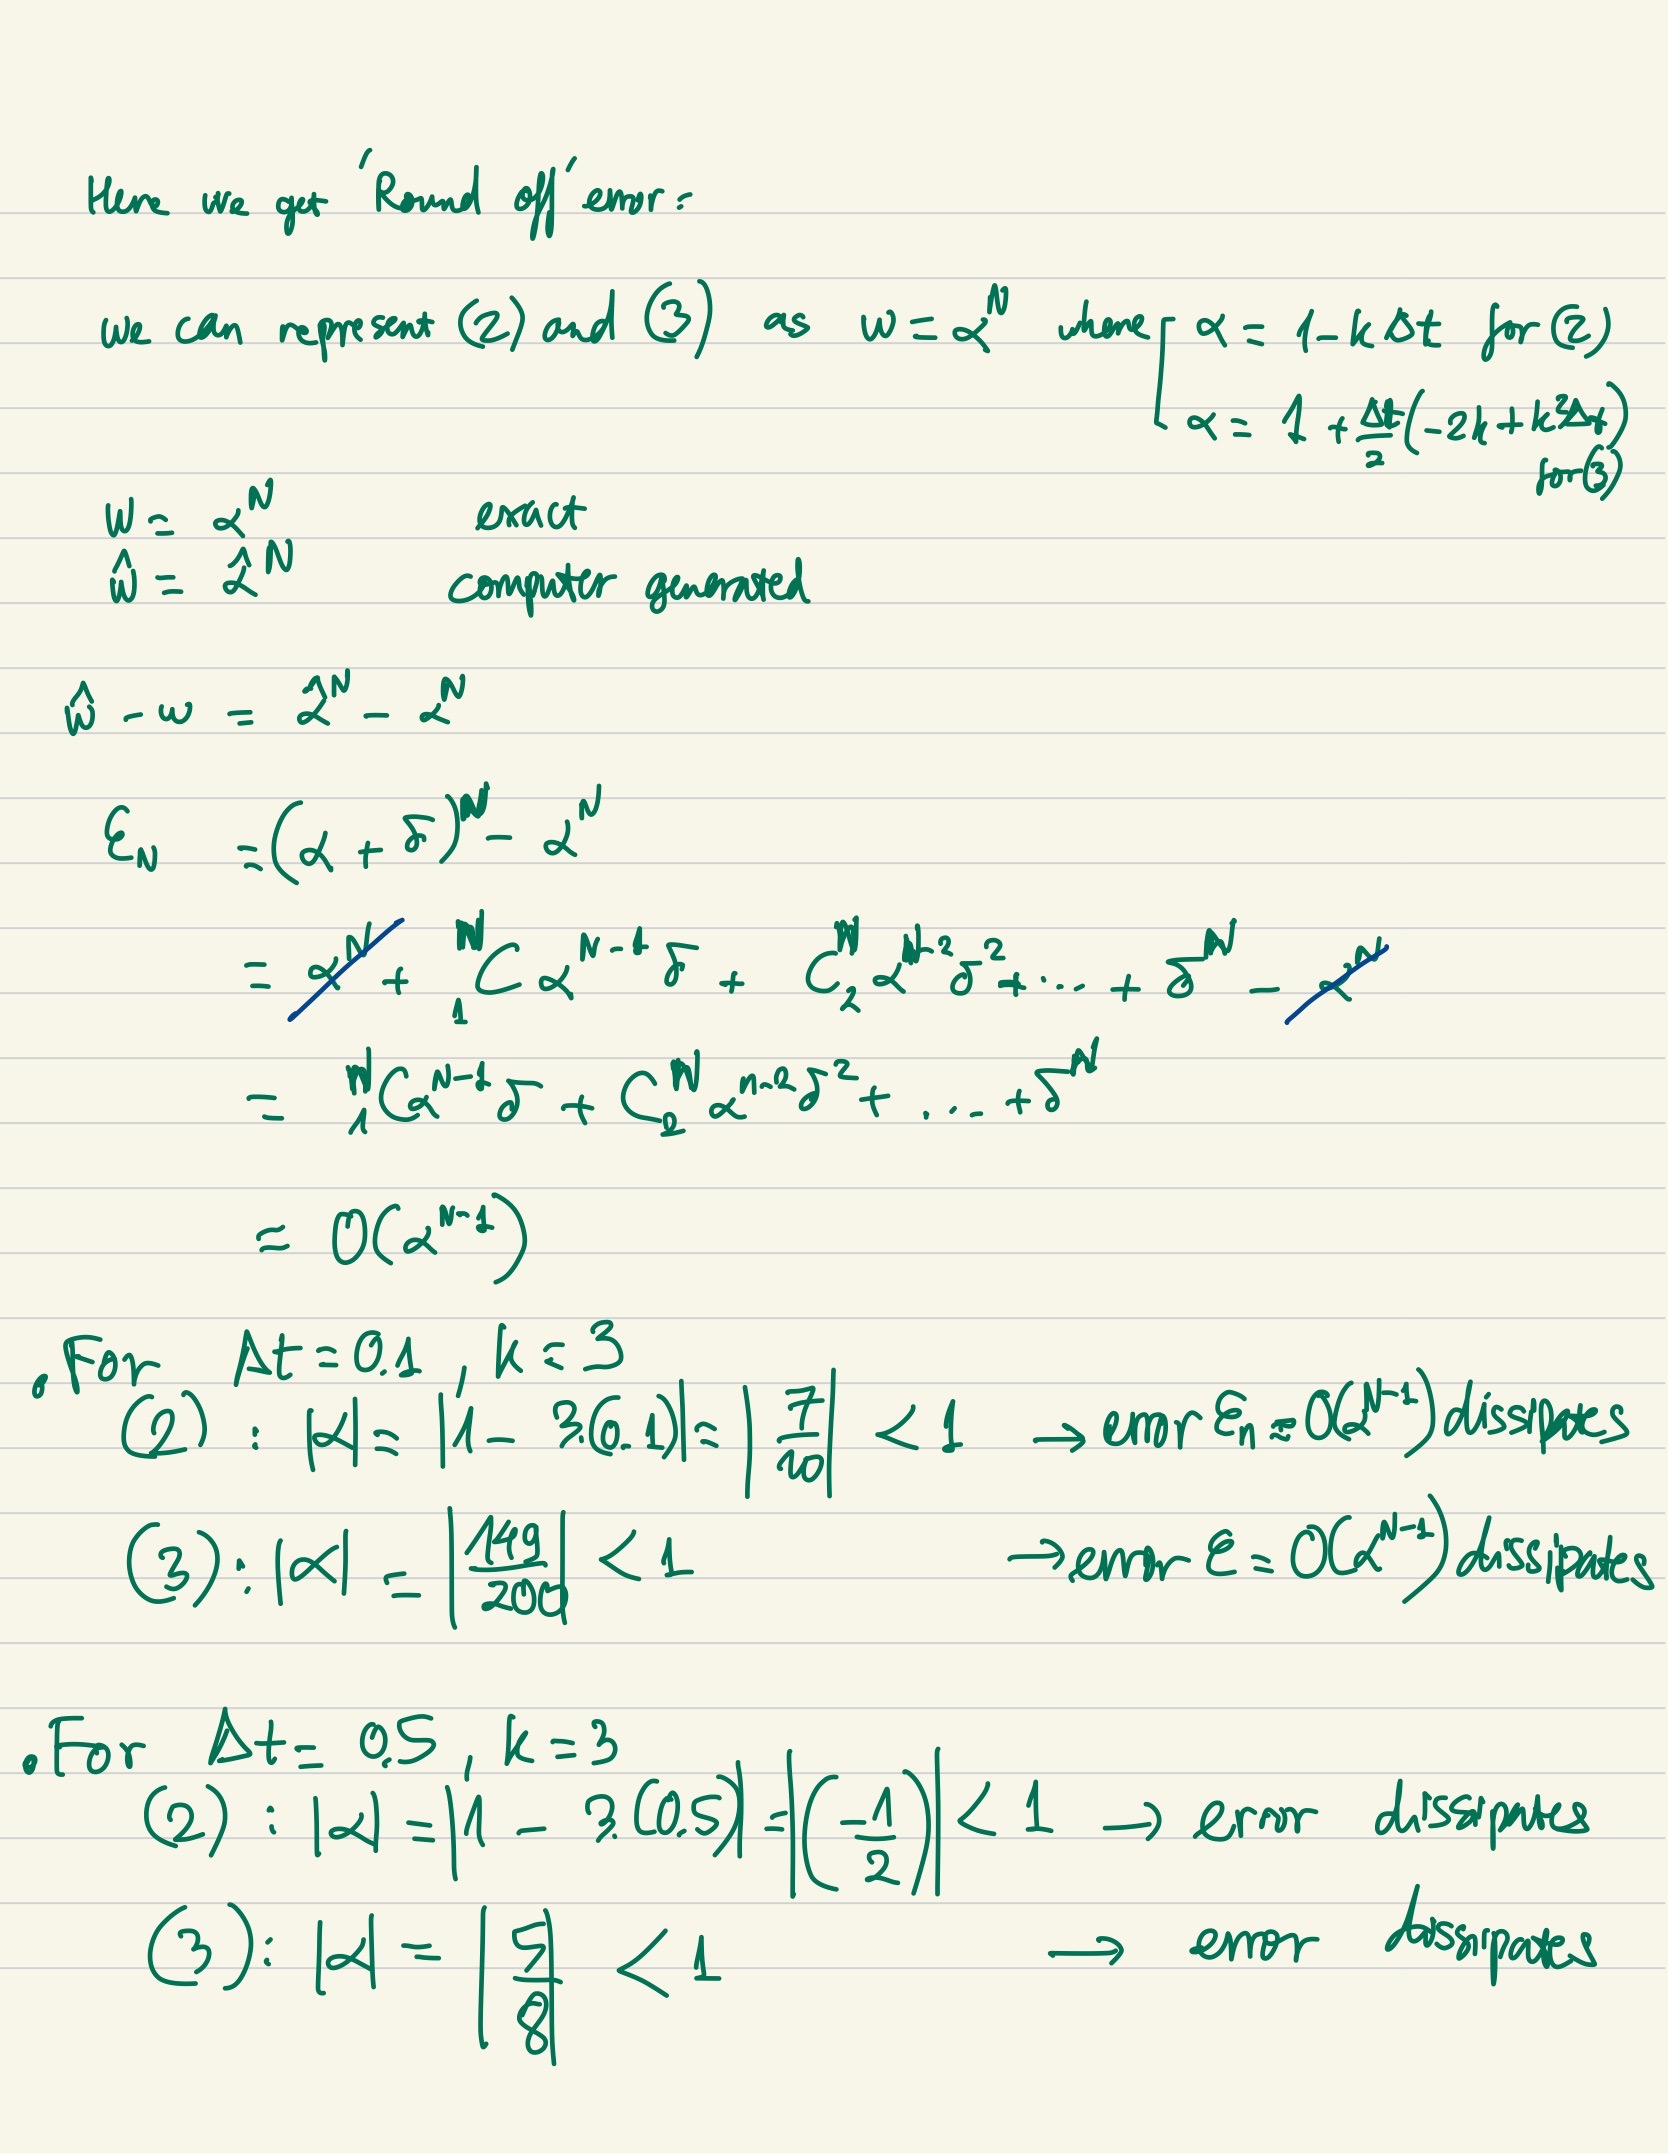 Here we get 'Round off' error:
we can represent (2) and (3) as w = α^N where [ α = 1 - k Δt for (2)
α = 1 + Δt/2 (-2k + k²Δt)
for (3)
W = α^N exact
ŵ = α̂^N computer generated
ŵ - w = α̂^N - α^N
Ɛ_N = (α + δ)^N - α^N
= α^N + ^N_1C α^(N-1) δ + C^N_2 α^(N-2) δ² + ... + δ^N - α^N
= ^N_1C α^(N-1) δ + C^N_2 α^(n-2) δ² + ... + δ^N
≈ O(α^(N-1))
. For Δt = 0.1 , k = 3
(2) : |α| = |1 - 3.(0.1)| = |7/10| < 1 → error Ɛ_n ≈ O(α^(N-1)) dissipates
(3) : |α| = |149/200| < 1 → error Ɛ = O(α^(N-1)) dissipates
. For Δt = 0.5 , k = 3
(2) : |α| = |1 - 3.(0.5)| = |(-1/2)| < 1 → error dissipates
(3) : |α| = |5/8| < 1 → error dissipates